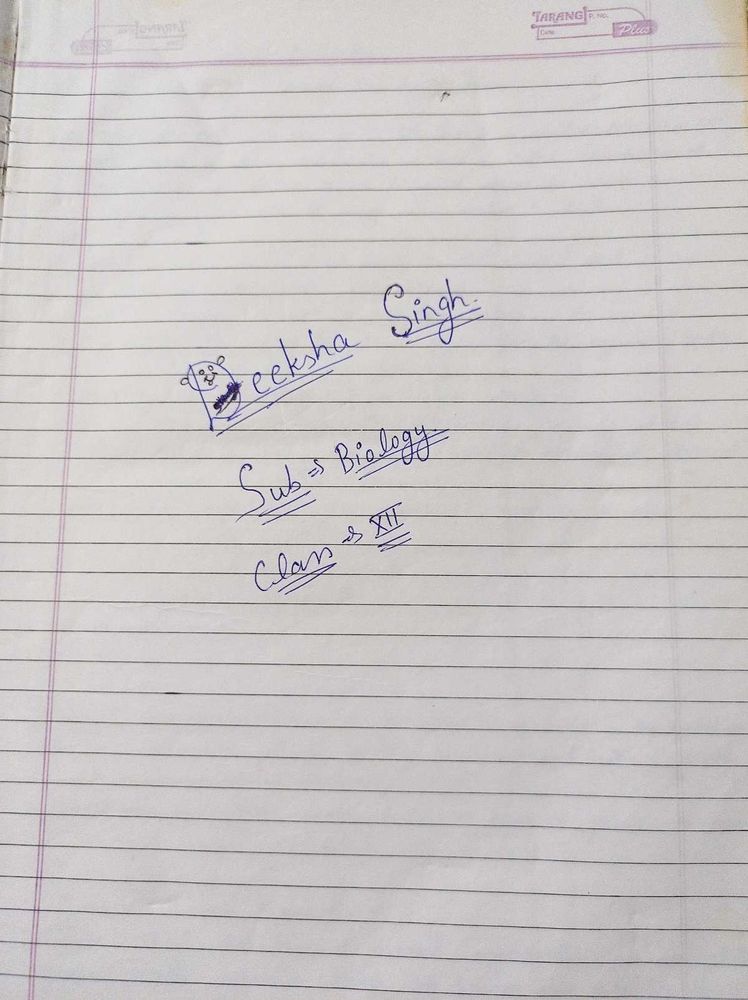 TARANG P. No.
Date
Plus
Deeksha Singh.
Sub ⇒ Biology.
Class ⇒ XII